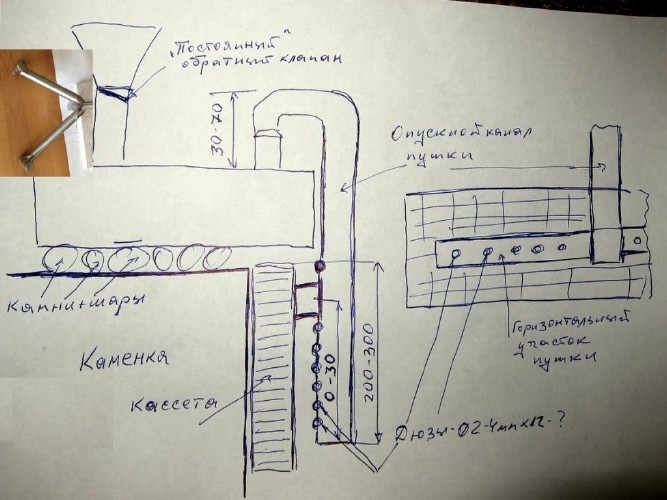 „Постоянный"
обратный клапан
30-70
Опускной канал
пушки
Камни+шары
Каменка
Кассета
0-30
200-300
Горизонтальный
участок
пушки
Дюзы-Ø2-4мм х12-?